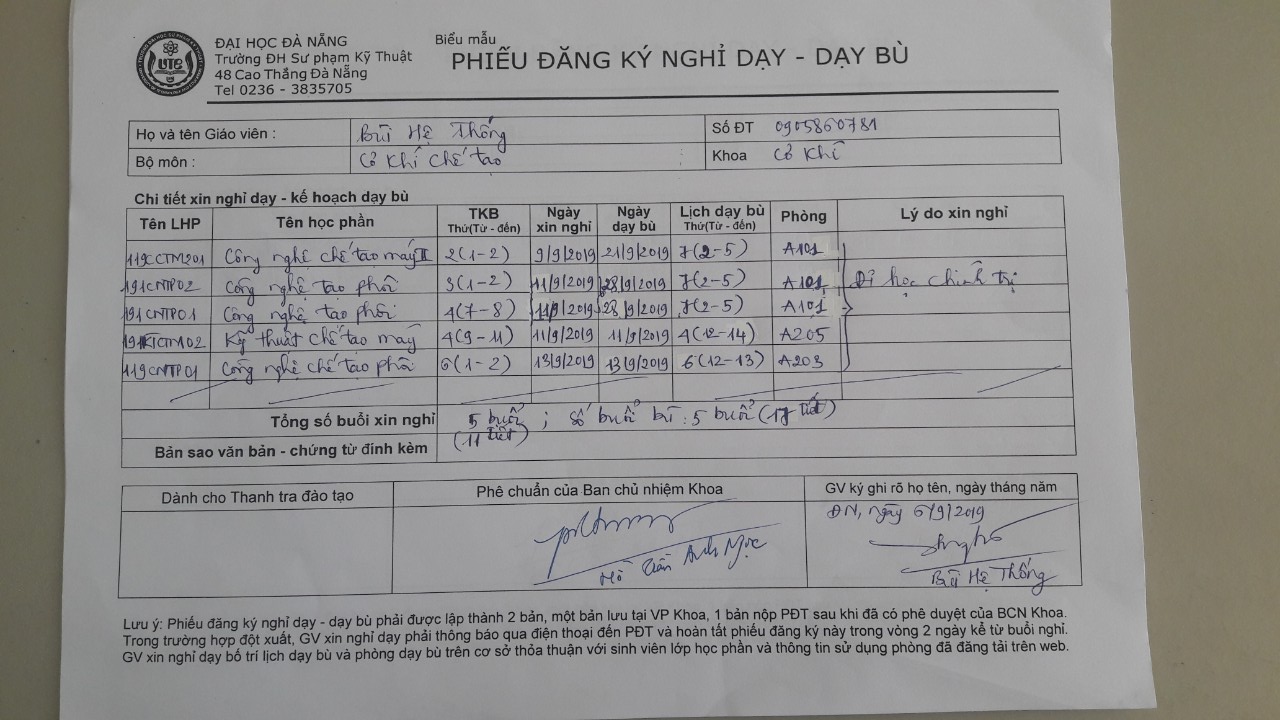 ĐẠI HỌC ĐÀ NẴNG
Trường ĐH Sư phạm Kỹ Thuật
48 Cao Thắng Đà Nẵng
Tel 0236 - 3835705
Biểu mẫu
PHIẾU ĐĂNG KÝ NGHỈ DẠY - DẠY BÙ
UTE
Họ và tên Giáo viên : Bùi Hệ Thống Số ĐT 0905860781
Bộ môn : Cơ khí chế tạo Khoa Cơ khí
Chi tiết xin nghỉ dạy - kế hoạch dạy bù
Tên LHP Tên học phần TKB Thứ(Từ - đến) Ngày xin nghỉ Ngày dạy bù Lịch dạy bù Thứ(Từ - đến) Phòng Lý do xin nghỉ
119CCTM201 Công nghệ chế tạo máy II 2(1-2) 9/9/2019 21/9/2019 7(2-5) A101
191CNTP02 Công nghệ tạo phôi 3(1-2) 11/9/2019 28/9/2019 7(2-5) A101 Đi học chính trị
191CNTP01 Công nghệ tạo phôi 4(7-8) 11/9/2019 28/9/2019 7(2-5) A101
Kỹ thuật chế tạo máy 4(9-11) 11/9/2019 11/9/2019 4(12-14) A205
119CNTP01 Công nghệ chế tạo phôi 6(1-2) 13/9/2019 13/9/2019 6(12-13) A203
Tổng số buổi xin nghỉ 5 buổi ; số buổi bù : 5 buổi (tiết)
(11 tiết)
Bản sao văn bản - chứng từ đính kèm
Dành cho Thanh tra đào tạo Phê chuẩn của Ban chủ nhiệm Khoa GV ký ghi rõ họ tên, ngày tháng năm
ĐN, ngày 6/9/2019
Hồ Trần Anh Ngọc
Bùi Hệ Thống
Lưu ý: Phiếu đăng ký nghỉ dạy - dạy bù phải được lập thành 2 bản, một bản lưu tại VP Khoa, 1 bản nộp PĐT sau khi đã có phê duyệt của BCN Khoa.
Trong trường hợp đột xuất, GV xin nghỉ dạy phải thông báo qua điện thoại đến PĐT và hoàn tất phiếu đăng ký này trong vòng 2 ngày kể từ buổi nghỉ.
GV xin nghỉ dạy bố trí lịch dạy bù và phòng dạy bù trên cơ sở thỏa thuận với sinh viên lớp học phần và thông tin sử dụng phòng đã đăng tải trên web.